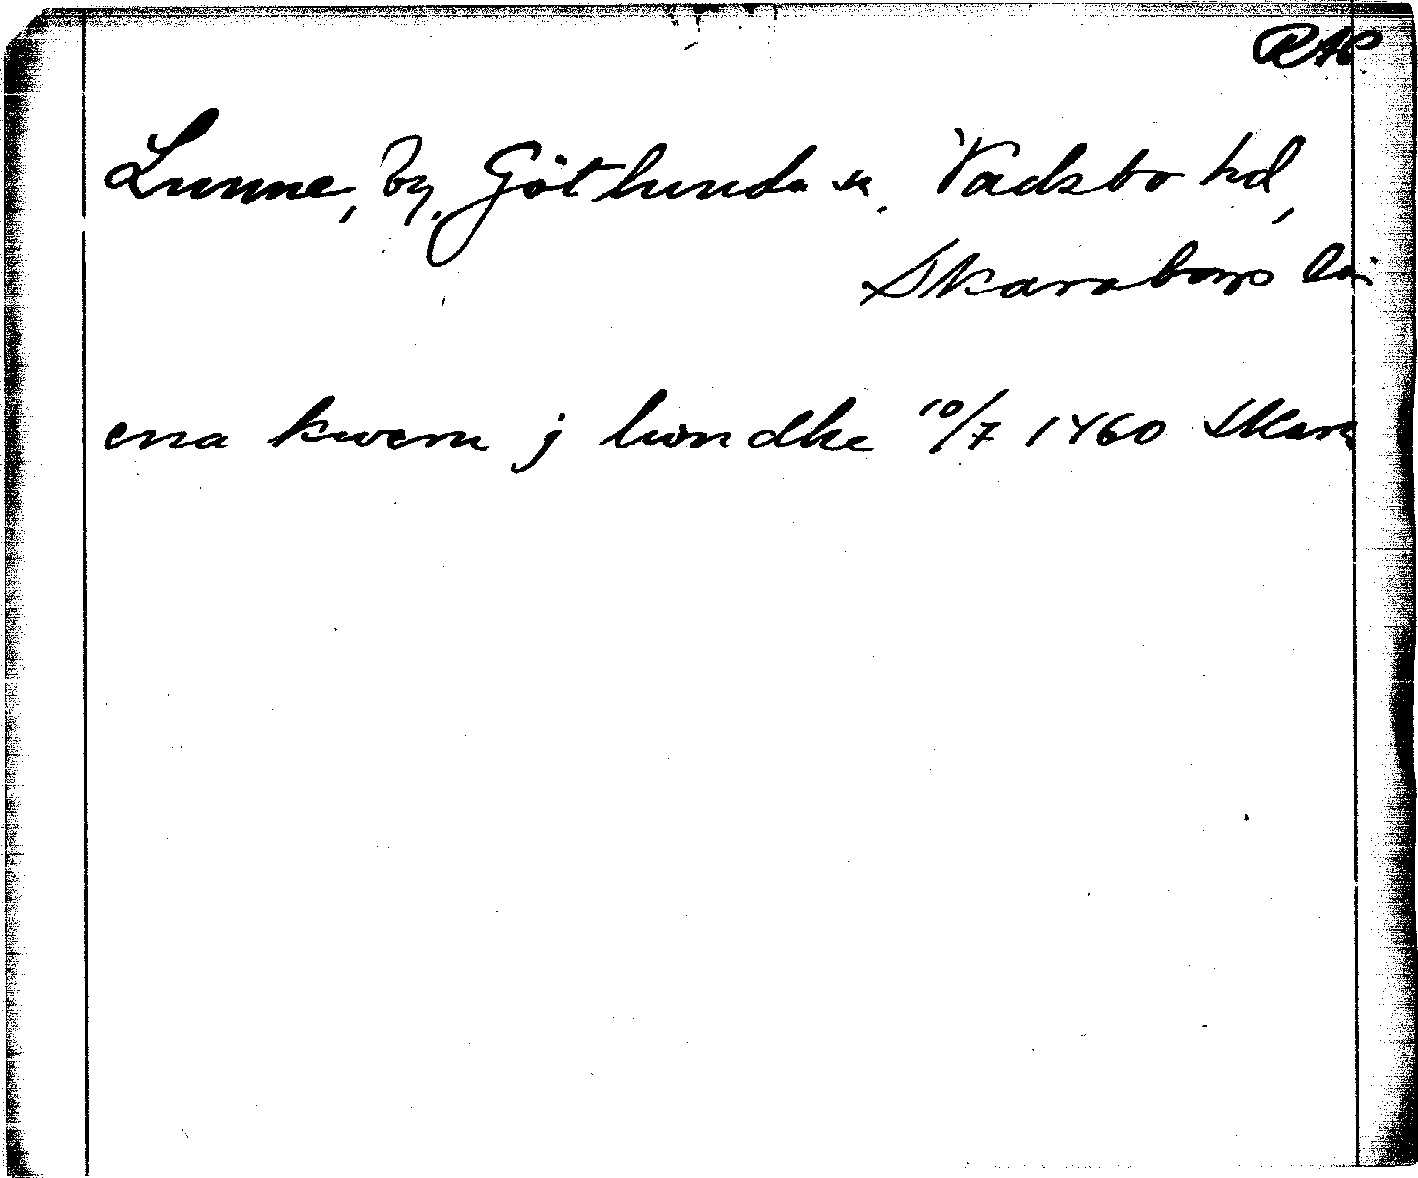 RAP
Lunne, by, Götlunda sn. Vadsbo hd,
Skaraborgs län
ena kwern j lwndhe 10/7 1460 Skara